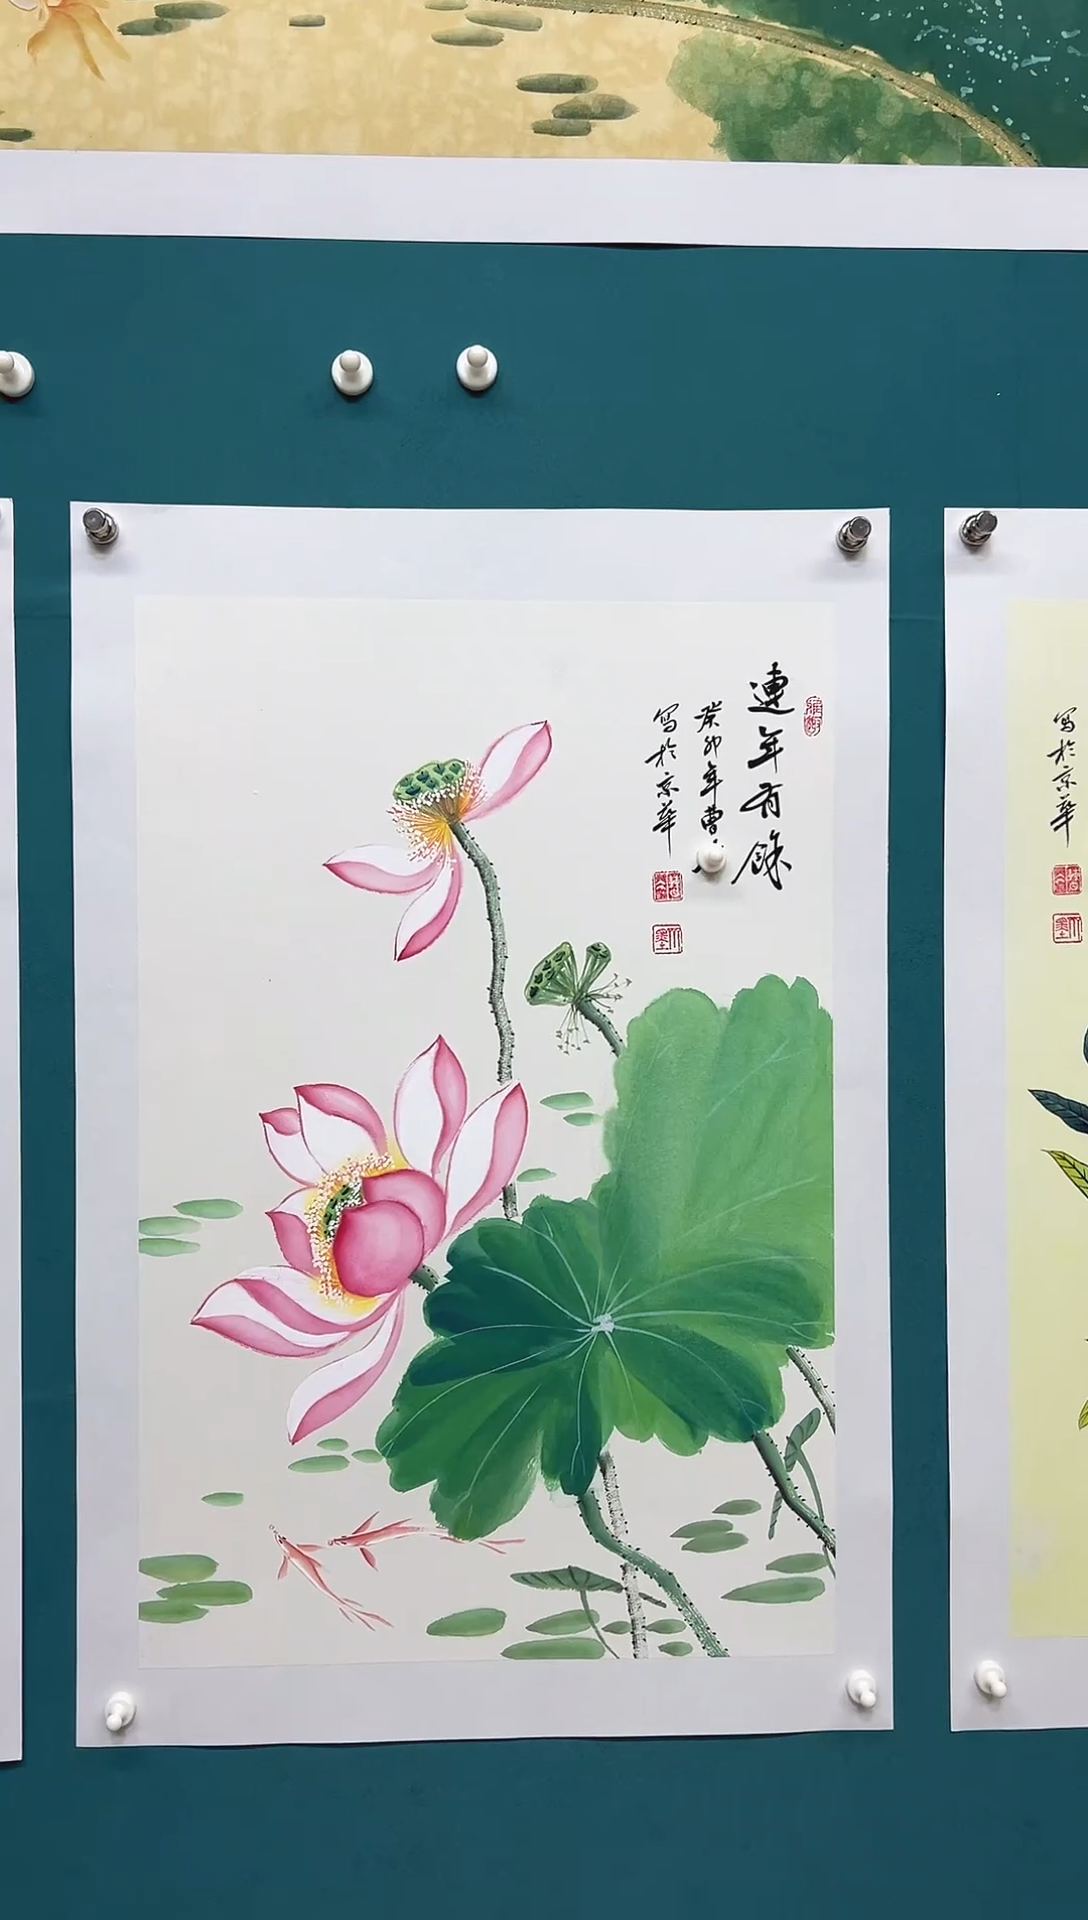 連年有餘
癸卯年曹
寫於京華
寫於京華